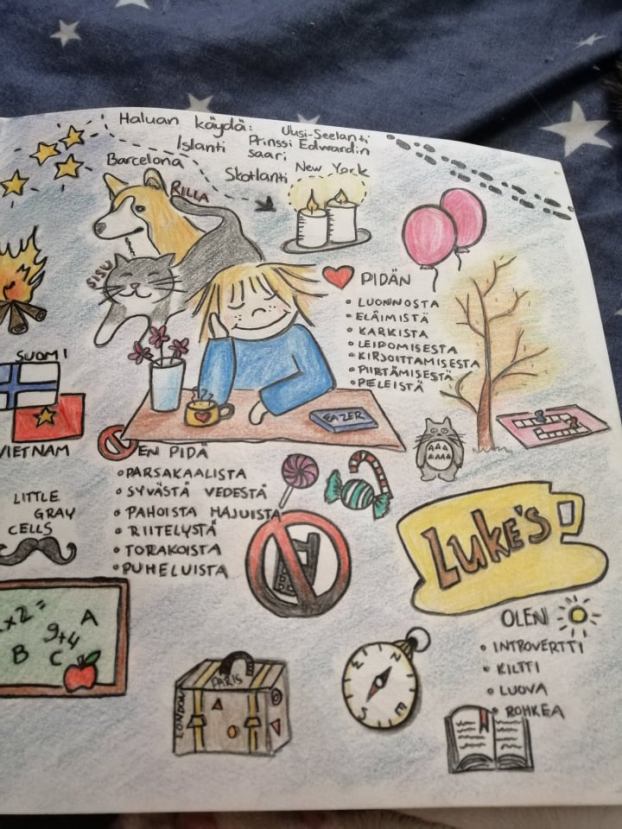 Haluan käydä:
Uusi-Seelanti
Islanti
Prinssi Edwardin
saari
Barcelona
Skotlanti
New York
RILLA
SISU
PIDÄN
• LUONNOSTA
• ELÄIMISTÄ
• KARKISTA
• LEIPOMISESTA
• KIRJOITTAMISESTA
• PIIRTÄMISESTÄ
• PELEISTÄ
SUOMI
VIETNAM
EN PIDÄ
• PARSAKAALISTA
• SYVÄSTÄ VEDESTÄ
• PAHOISTA HAJUISTA
• RIITELYSTÄ
• TORAKOISTA
• PUHELUISTA
LITTLE
GRAY
CELLS
LUKE'S
x2=
9+4
A
B
C
OLEN
• INTROVERTTI
• KILTTI
• LUOVA
• ROHKEA
PARIS
LONDON
N
E
S